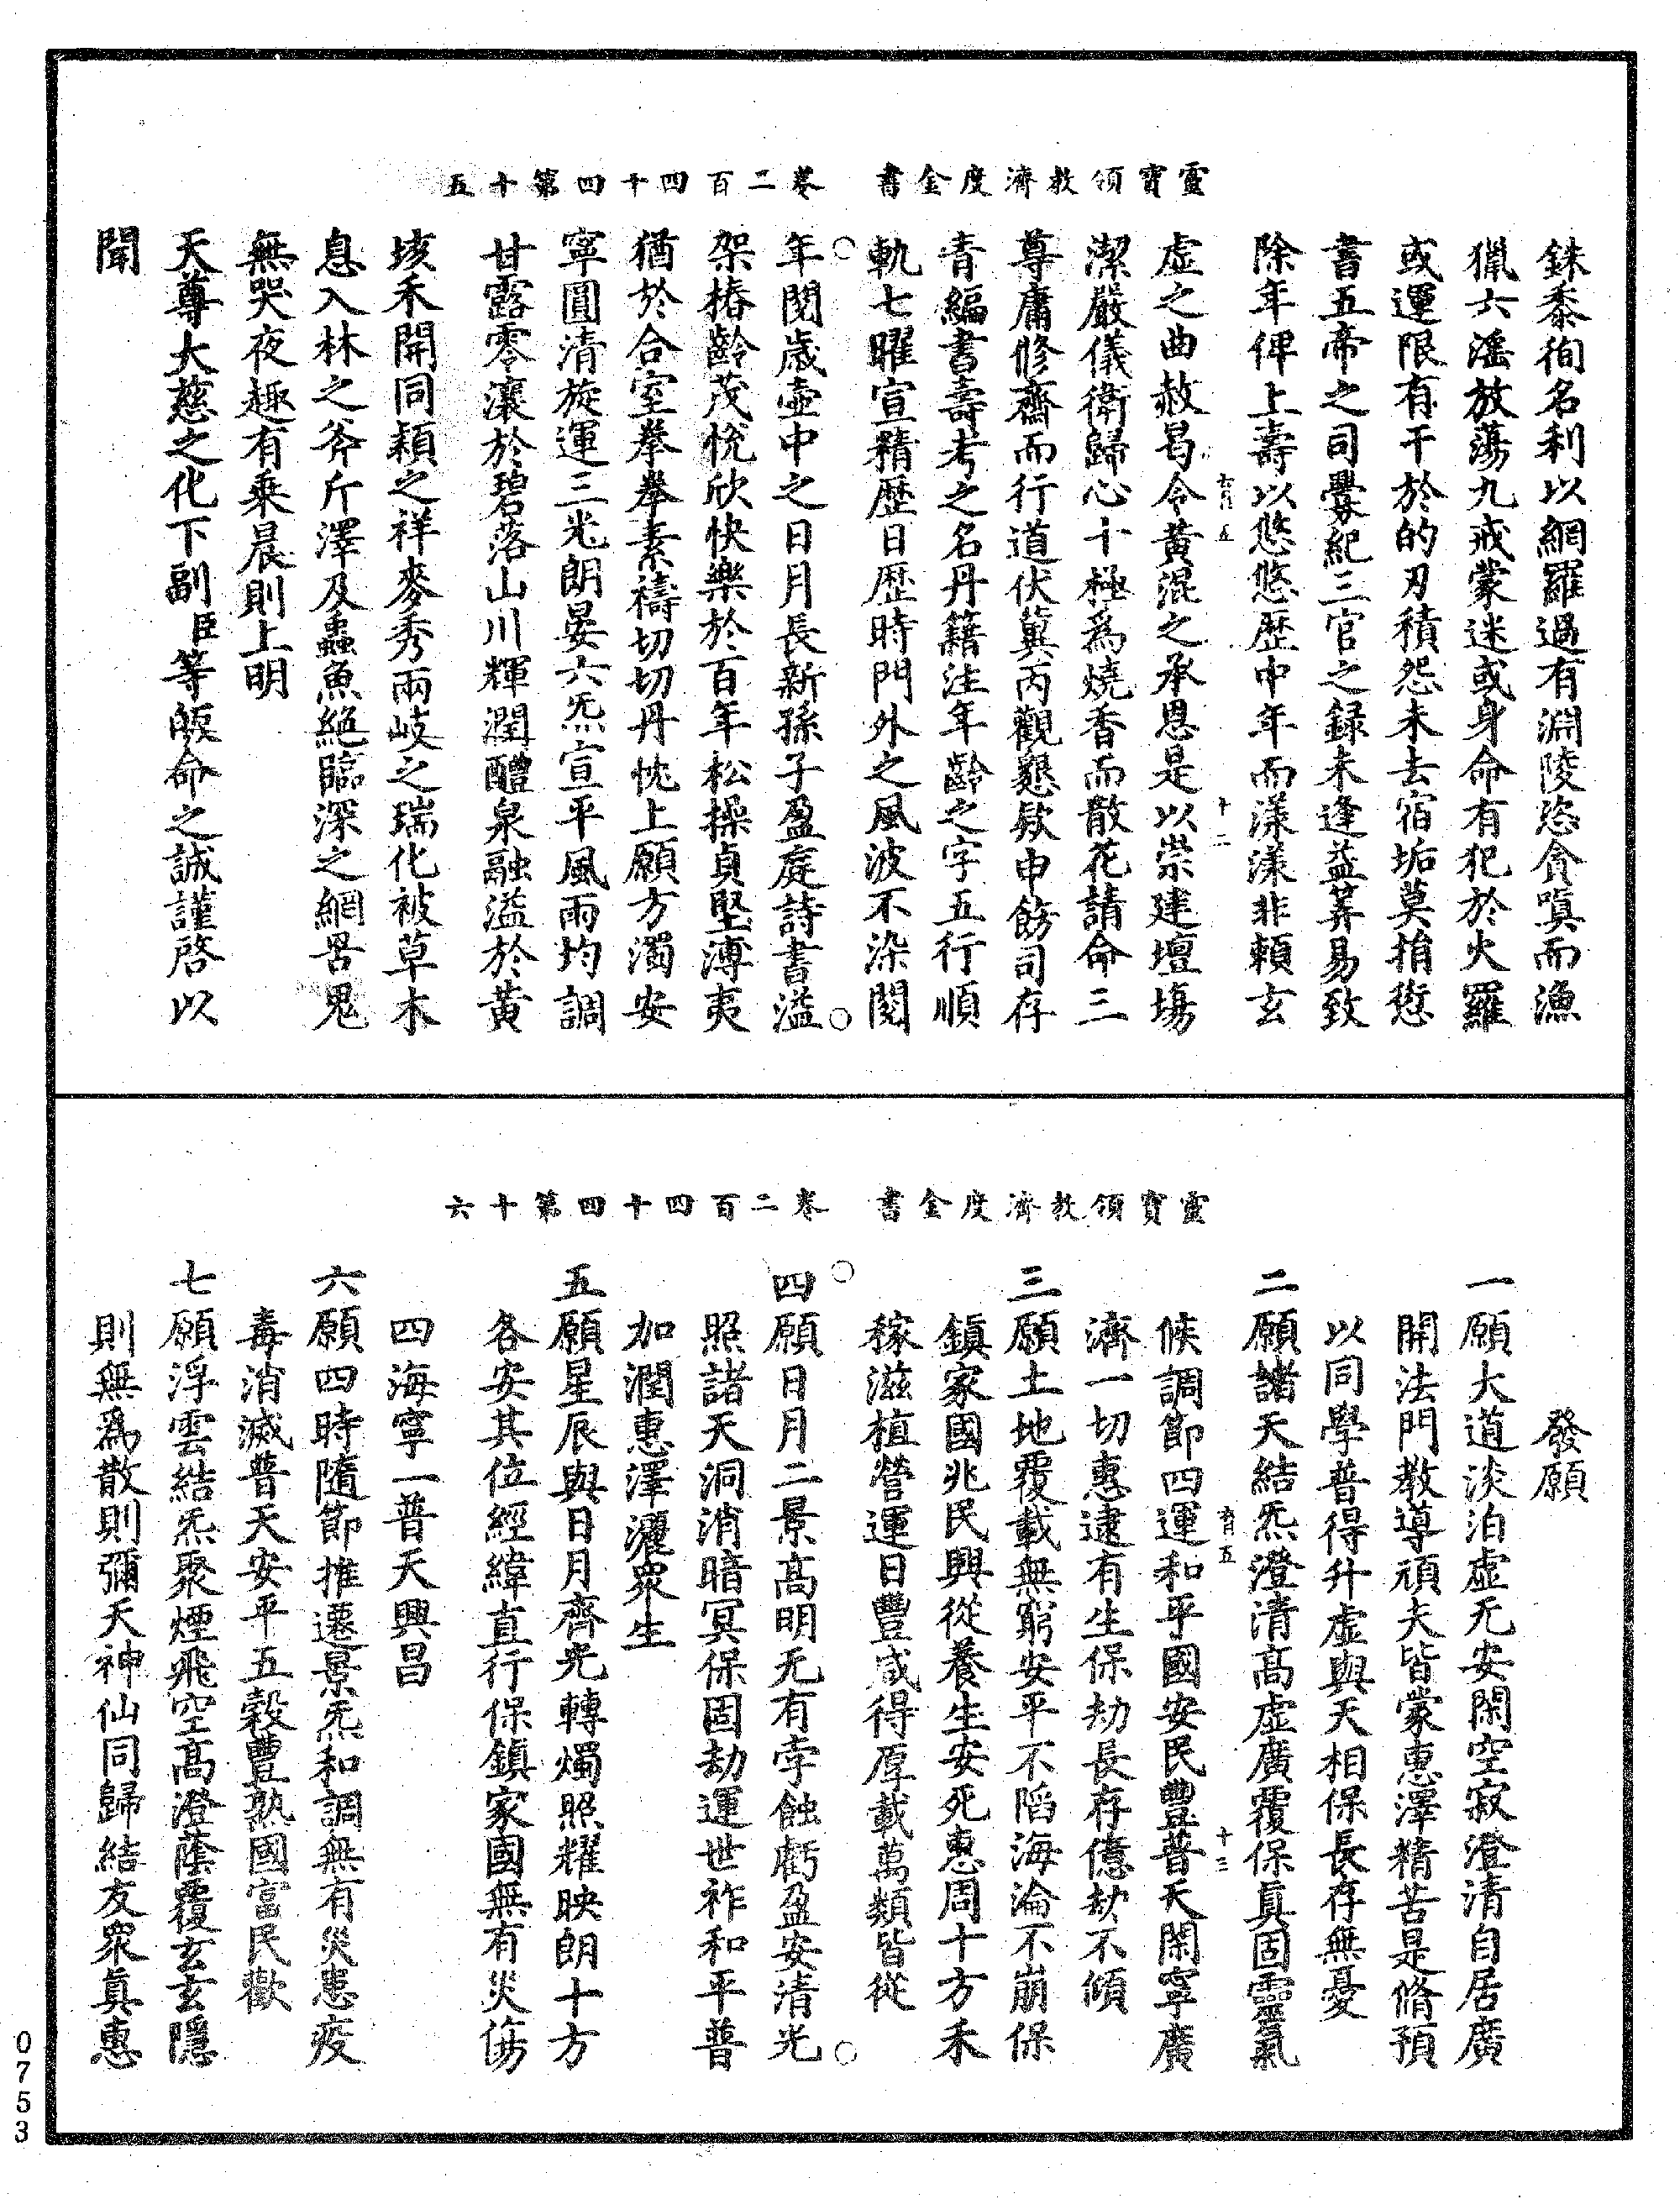 靈寶領教濟度金書　卷二百四十四第十五
銖黍徇名利以網羅過有淵陵恣貪嗔而漁
獵六滛放蕩九戒蒙迷或身命有犯於火羅
或運限有干於的刃積怨未去宿垢莫捎愆
書五帝之司釁紀三官之録未逢益筭易致
除年俾上壽以悠悠歷中年而漾漾非賴玄
虛之曲赦曷令黃混之承恩是以崇建壇塲
潔嚴儀衛歸心十極為燒香而散花請命三
尊庸修齋而行道伏冀丙觀懇欵申飭司存
青編書壽考之名丹籍注年齡之字五行順
軌七曜宣精歷日歷時門外之風波不染閱
年閱歲壺中之日月長新孫子盈庭詩書溢
架椿齡茂恱欣快樂於百年松操貞堅溥夷
猶於合室拳拳素禱切切丹忱上願方濁安
寧圓清旋運三光朗晏六炁宣平風雨均調
甘露零瀼於碧落山川輝潤醴泉融溢於黃
垓禾開同穎之祥麥秀兩岐之瑞化被草木
息入林之斧斤澤及蟲魚絕臨深之網罟鬼
無哭夜趣有乘晨則上明
天尊大慈之化下副臣等皈命之誠謹啓以
聞
靈寶領教濟度金書　卷二百四十四第十六
發願
一願大道淡泊虛无安閑空寂澄清自居廣
開法門教導頑夫皆蒙惠澤精苦是脩預
以同學普得升虛與天相保長存無憂
二願諸天結炁澄清高虛廣覆保真固靈氣
候調節四運和平國安民豐普天閑寧廣
濟一切惠逮有生保劫長存億劫不傾
三願土地覆載無窮安平不陷海淪不崩保
鎮家國兆民興從養生安死惠周十方禾
稼滋植營運日豐咸得厚載萬類皆從
四願日月二景高明无有孛蝕虧盈安清光
照諸天洞消暗冥保固劫運世祚和平普
加潤惠澤灑眾生
五願星辰與日月齊光轉燭照耀映朗十方
各安其位經緯直行保鎮家國無有災傷
四海寧一普天興昌
六願四時隨節推遷景炁和調無有災恚疫
毒消滅普天安平五榖豐熟國富民歡
七願浮雲結炁聚煙飛空高澄蔭覆玄玄隱
則無為散則彌天神仙同歸結友眾真惠
0753